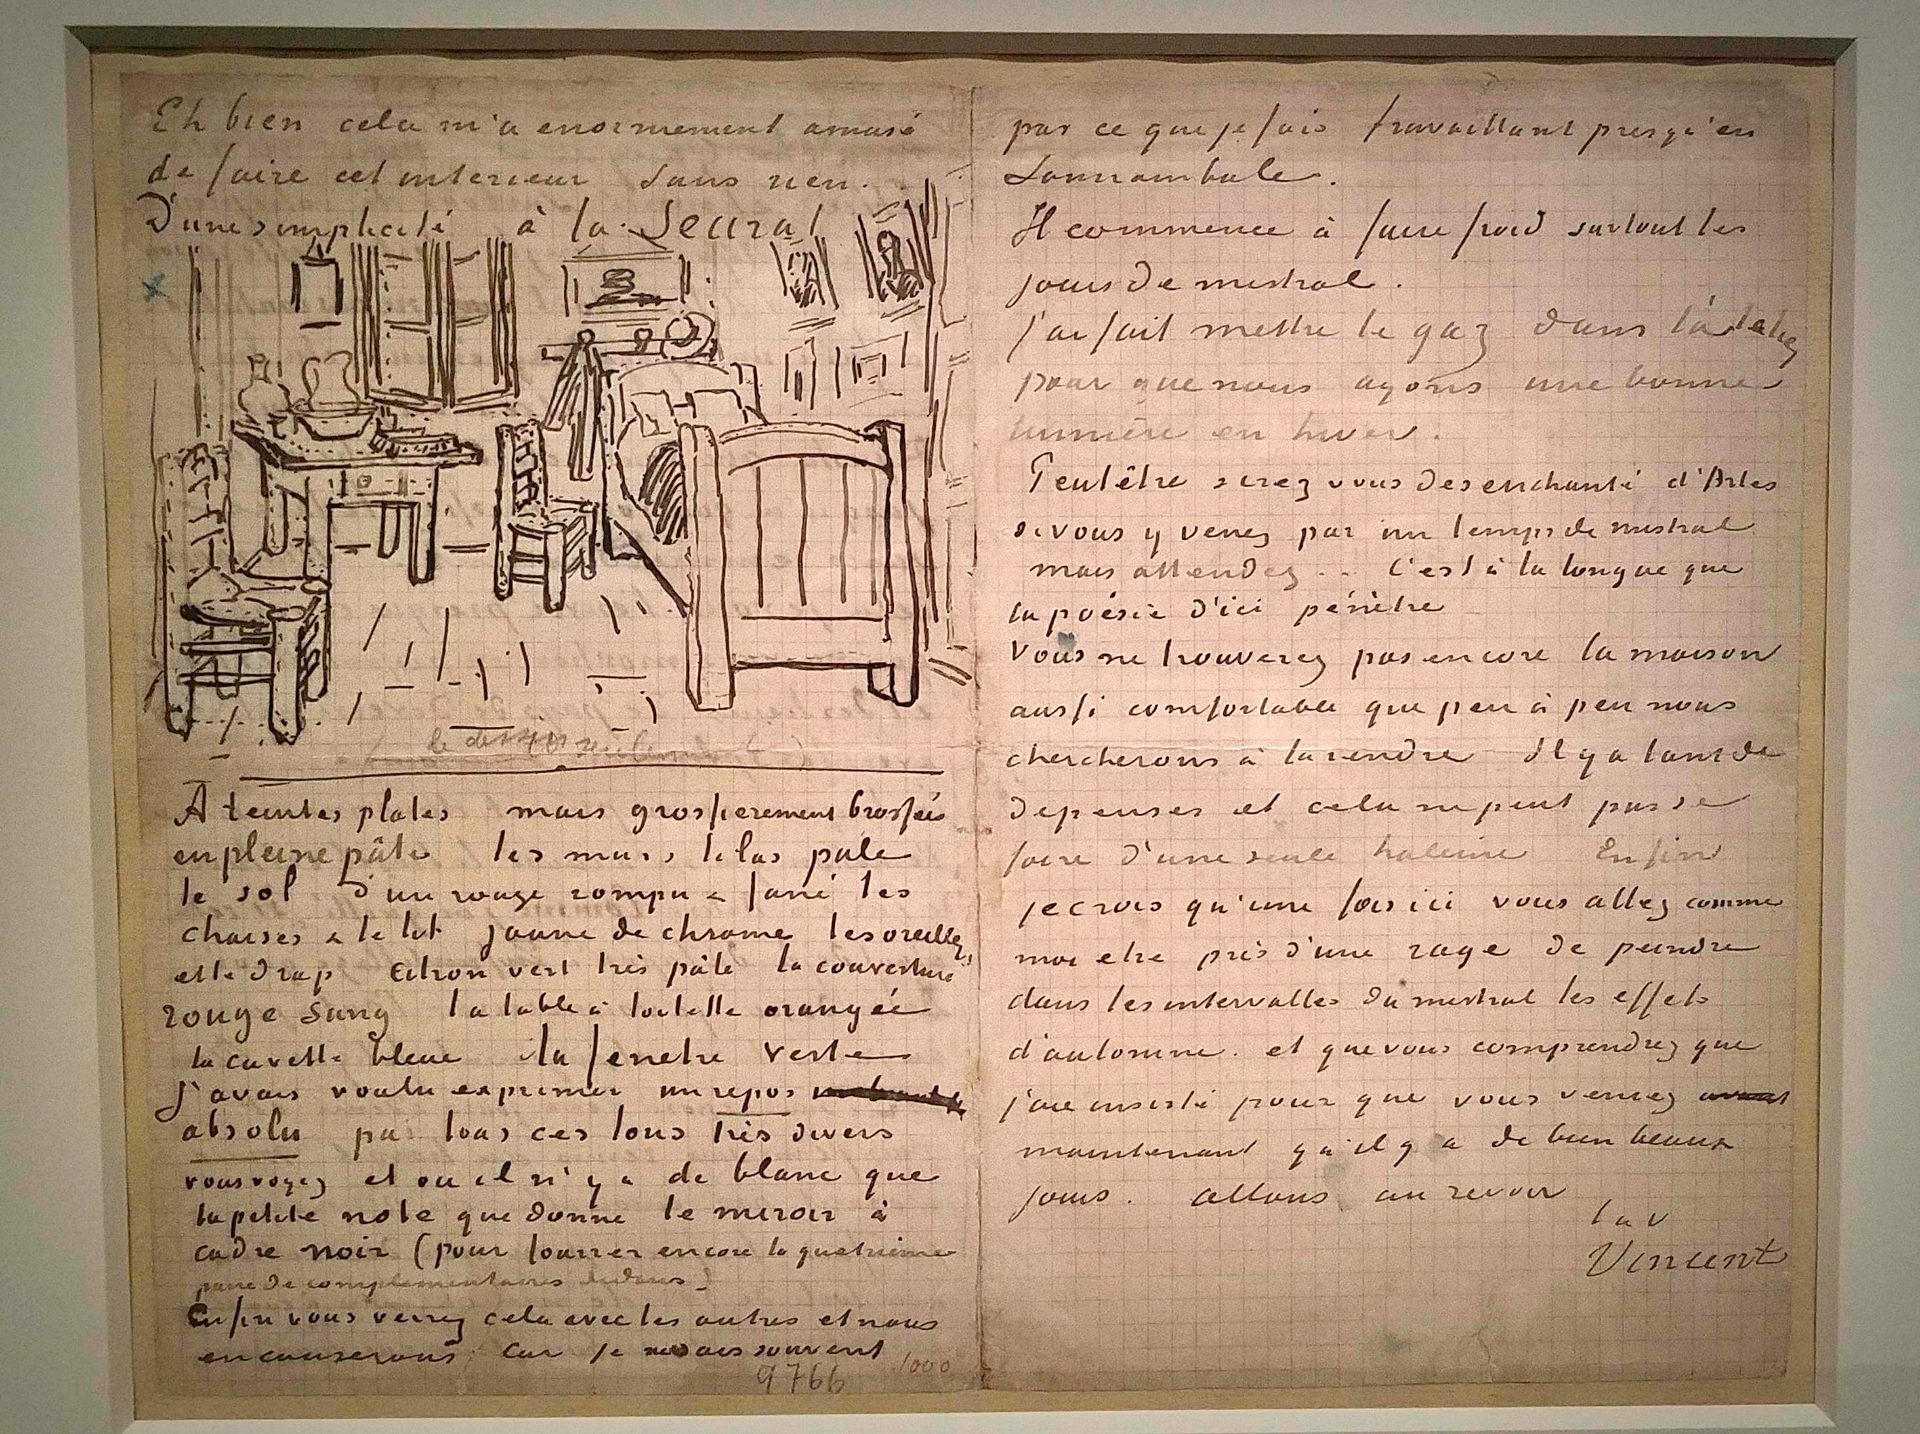 Eh bien cela m'a enormement amusé
de faire cet interieur sans rien.
D'une simplicité à la Seurat
le dessin seulement
A teintes plates mais grossierement brossées
en pleine pâte les murs lilas pale
le sol d'un rouge rompu & fané les
chaises & le lit jaune de chrome les oreillers
et le drap citron vert très pâle la couverture
rouge sang la table à toilette orangée
la cuvette bleue la fenetre verte
J'avais voulu exprimer un repos
absolu par tous ces tons très divers
vous voyez et ou il n'y a de blanc que
la petite note que donne le miroir à
cadre noir (pour fourrer encore la quatrieme
paire de complementaires dedans)
Enfin vous verrez cela avec les autres et nous
en causerons car je ne sais souvent
9766 1000
pas ce que je fais travaillant presqu'en
somnambule.
Il commence à faire froid surtout les
jours de mistral.
J'ai fait mettre le gaz dans l'atelier
pour que nous ayons une bonne
lumière en hiver.
Peutêtre serez vous desenchanté d'Arles
si vous y venez par un temps de mistral
mais attendez .. C'est à la longue que
la poésie d'ici pénètre
Vous ne trouverez pas encore la maison
aussi comfortable que peu à peu nous
chercherons à la rendre Il y a tant de
depenses et cela ne peut pas se
faire d'une seule haleine Enfin
je crois qu'une fois ici vous allez comme
moi etre pris d'une rage de peindre
dans les intervalles du mistral les effets
d'automne. et que vous comprendrez que
j'aie insisté pour que vous veniez avant
maintenant qu'il y a de bien beaux
jours. allons au revoir
t a v
Vincent